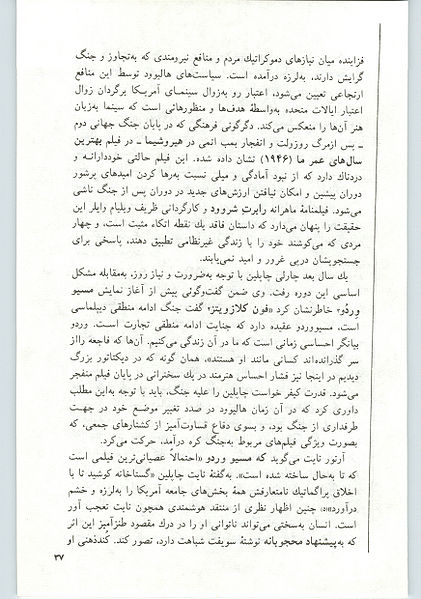 فزاینده میان نیازهای دموکراتیك مردم و منافع نیرومندی که به‌تجاوز و جنگ
گرایش دارند، به‌لرزه درآمده است. سیاست‌های هالیوود توسط این منافع
ارتجاعی تعیین می‌شود، اعتبار رو به‌زوال سینمـای آمریـکا برگردان زوال
اعتبار ایالات متحده به‌واسطهٔ هدف‌ها و منظورهایی است که سینما به‌زبان
هنر آن‌ها را منعکس می‌کند. دگرگونی فرهنگی که در پایان جنگ جهانی دوم
ـ پس ازمرگ روزولت و انفجار بمب اتمی در هیروشیما ـ در فیلم بهترین
سال‌های عمر ما (۱۹۴۶) نشان داده شده. این فیلم حالتی خوددارانـه و
دردناك دارد که از نبود آمادگی و میلی نسبت به‌رها کردن امیدهای پرشور
دوران پیشین و امکان نیافتن ارزش‌های جدید در دوران پس از جنگ ناشی
می‌شود. فیلمنامهٔ ماهرانه رابرت شروود و کارگردانی ظریف ویلیام وایلر این
حقیقت را پنهان می‌دارد که داستان فاقد یك نقطه اتکاء مثبت است، و چهار
مردی که می‌کوشند خود را با زندگی غیرنظامی تطبیق دهند، پاسخی برای
جستجویشان درپی غرور و امید نمی‌یابند.
یك سال بعد چارلی چاپلین با توجه به‌ضرورت و نیاز روز، به‌مقابله مشکل
اساسی این دوره رفت. وی ضمن گفت‌وگوئی پیش از آغاز نمایش مسیو
وردُو خاطرنشان کرد «فون کلازویتز گفت جنگ ادامه منطقی دیپلماسی
است، مسیووردو عقیده دارد که جنایت ادامه منطقی تجارت اسـت. وردو
بیانگر احساسی زمانی است که ما در آن زندگی می‌کنیم. آن‌ها که فاجعه رااز
سر گذرانده‌اند کسانی مانند او هستند»، همان گونه که در دیکتاتور بزرگ
دیدیم در اینجا نیز فشار احساس هنرمند در یك سخنرانی در پایان فیلم منفجر
می‌شود. قدرت کیفر خواست چاپلین را علیه جنگ، باید با توجه به‌این مطلب
داوری کرد که در آن زمان هالیوود در صدد تغییر موضع خود در جهـت
طرفداری از جنگ بود، و بسوی دفاع قساوت‌آمیز از کشتارهای جمعی، که
بصورت ویژگی فیلم‌های مربوط به‌جنگ کره درآمد، حرکت می‌کرد.
آرتور نایت می‌گوید که مسیو وردو «احتمالاً عصیانی‌ترین فیلمی است
که تا به‌حال ساخته شده است». به‌گفتهٔ نایت چاپلین «گستاخانه کوشید تا با
اخلاق پراگماتیك نامتعارفش همهٔ بخش‌های جامعه آمریکا را به‌لرزه و خشم
درآورد» چنین اظهار نظری از منتقد هوشمندی همچون نایت تعجب آور
است. انسان به‌سختی می‌تواند ناتوانی او را در درك مقصود طنزآمیز این اثر
که به‌پیشنهاد محجوبانه نوشتهٔ سویفت شباهت دارد، تصور کند. کُندذهنی او
۳۷